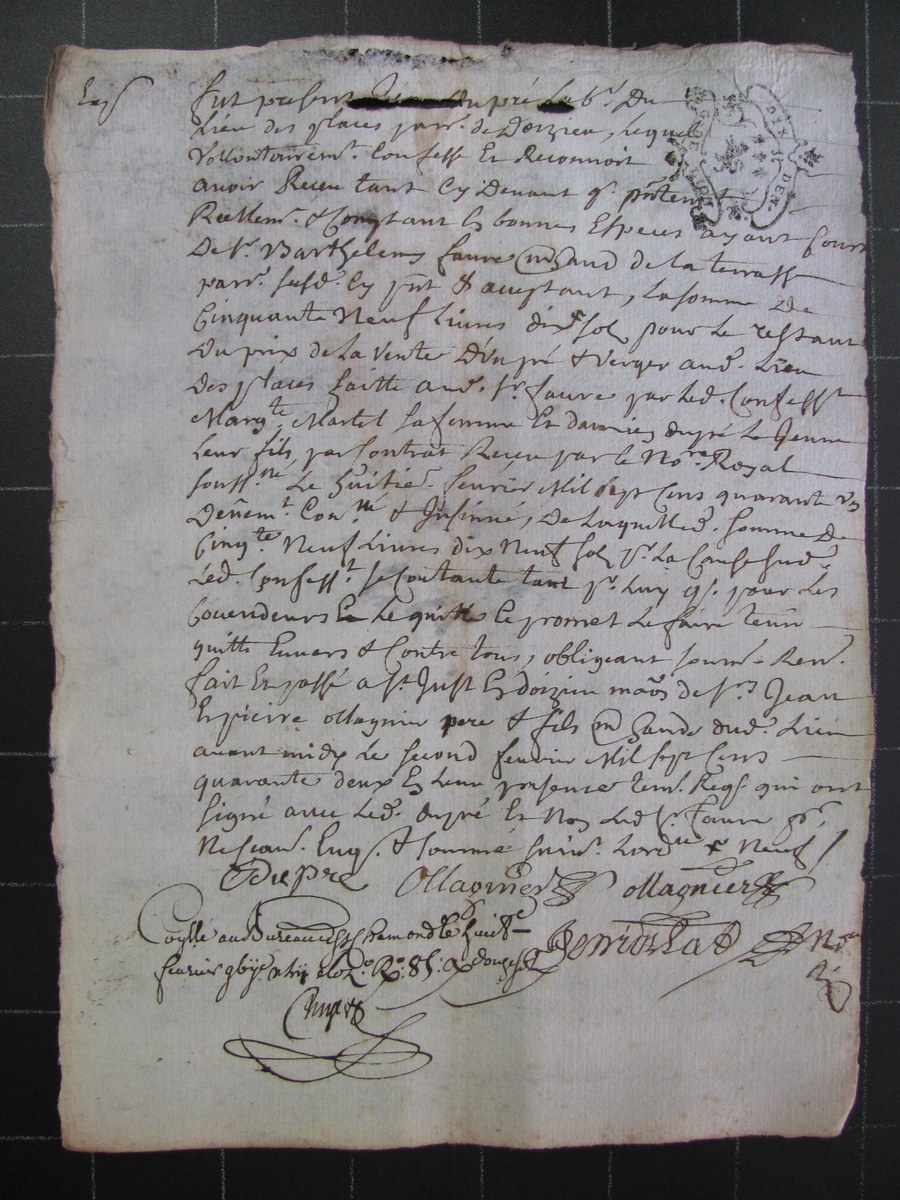 Exp
fut present dupré lab.r Du
Lieu des places parr. de Doizieu, lequel
vollontairem.t Confesse Et Reconnoit
avoir Receu tant Cy Devant q. pntem.t
Reellem.t & Comptant En bonnes Especes ayant Cours
De S.r Barthelemy faure md de la terrasse
parr. susd. Cy pnt & aceptant, la somme De
Cinquante Neuf Livres dix sol pour Le restant
Du prix de La vente D'un pré & verger aud. Lieu
Des places faitte aud. Sr. faure par Led. Confess.t
Marg.te Martel sa femme Et dupré Le Jeune
Leur fils, par Contrat Receu par le No.re Royal
souss.né Le huitie. fevrier Mil sept Cens quarante un
Deüem.t Con.lé & Insinué, De Laquelle d. somme De
Cinq.te Neuf Livres dix Neuf sol p.r La Cause susd.
Led. Confess.t se Contante tant p.r Luy q. pour Les
Covendeurs En quitte Et promet Le faire tenir
quitte Envers & Contre tous, obligeant soum. Ren.
fait Et passé a St. Just En doizieu maōn de S.rs Jean
Et pierre ollagnier pere & fils mds dud. Lieu
avant midy Le second fevrier Mil sept Cens
quarante deux En Leur presence tem. Reqs. qui ont
signé avec Led. dupré Et Non Led. S. faure p.r
Ne scav.r Enq. & sommé suiv.t Lord.ce
Dupré Ollagnier ollagnier
Collé au Bureau de St Chamond le huit
fevrier R. 85. douze s.